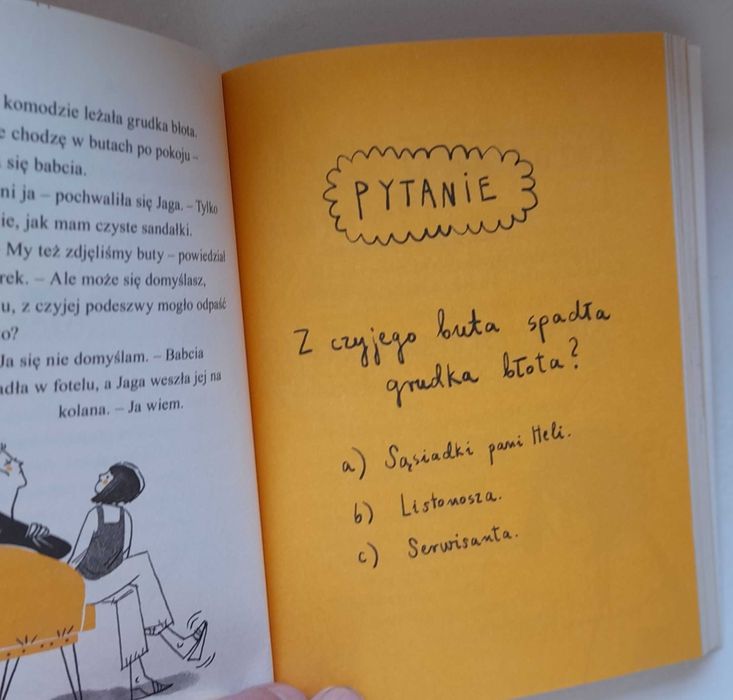 komodzie leżała grudka błota.
chodzę w butach po pokoju –
się babcia.
ni ja – pochwaliła się Jaga. – Tylko
ie, jak mam czyste sandałki.
My też zdjęliśmy buty – powiedział
rek. – Ale może się domyślasz,
u, z czyjej podeszwy mogło odpaść
o?
Ja się nie domyślam. – Babcia
adła w fotelu, a Jaga weszła jej na
kolana. – Ja wiem.
PYTANIE
Z czyjego buta spadła
grudka błota?
a) Sąsiadki pani Heli.
b) Listonosza.
c) Serwisanta.